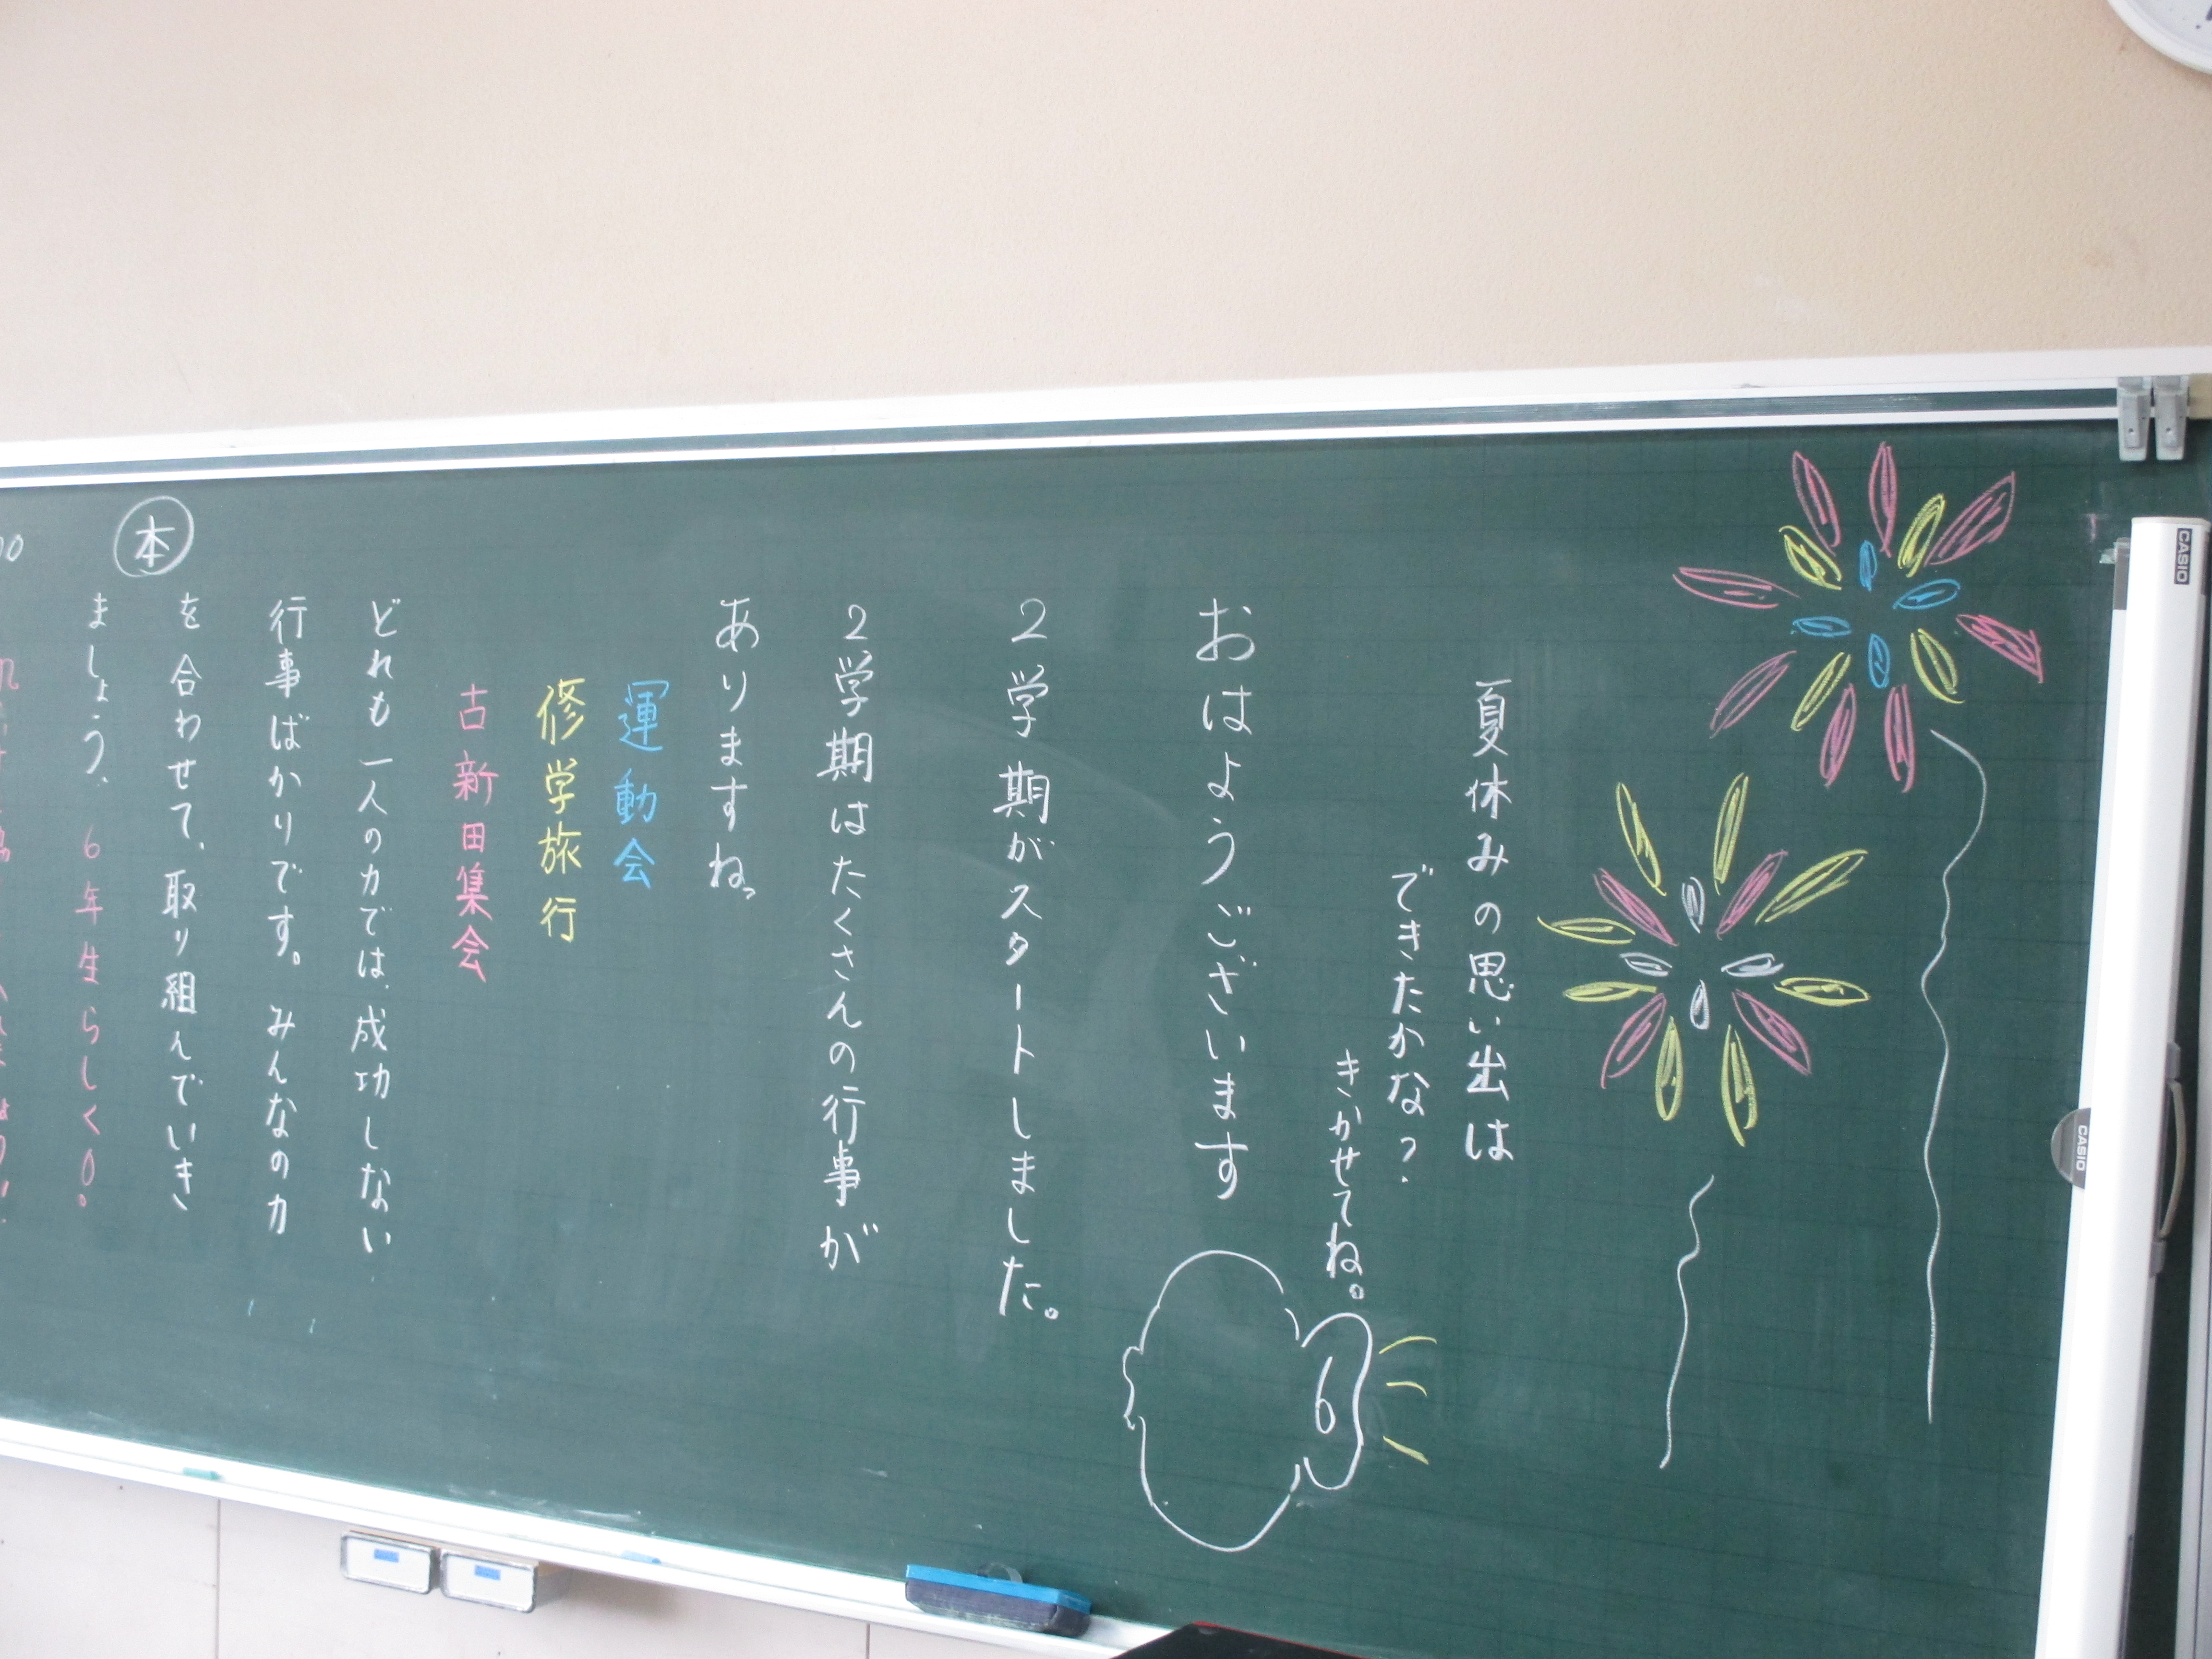 夏休みの思い出は
できたかな?
きかせてね。
おはようございます
2学期がスタートしました。
2学期はたくさんの行事が
ありますね。
運動会
修学旅行
古新田集会
どれも一人の力では、成功しない
行事ばかりです。みんなの力
を合わせて、取り組んでいき
ましょう。6年生らしく
本
CASIO
CASIO